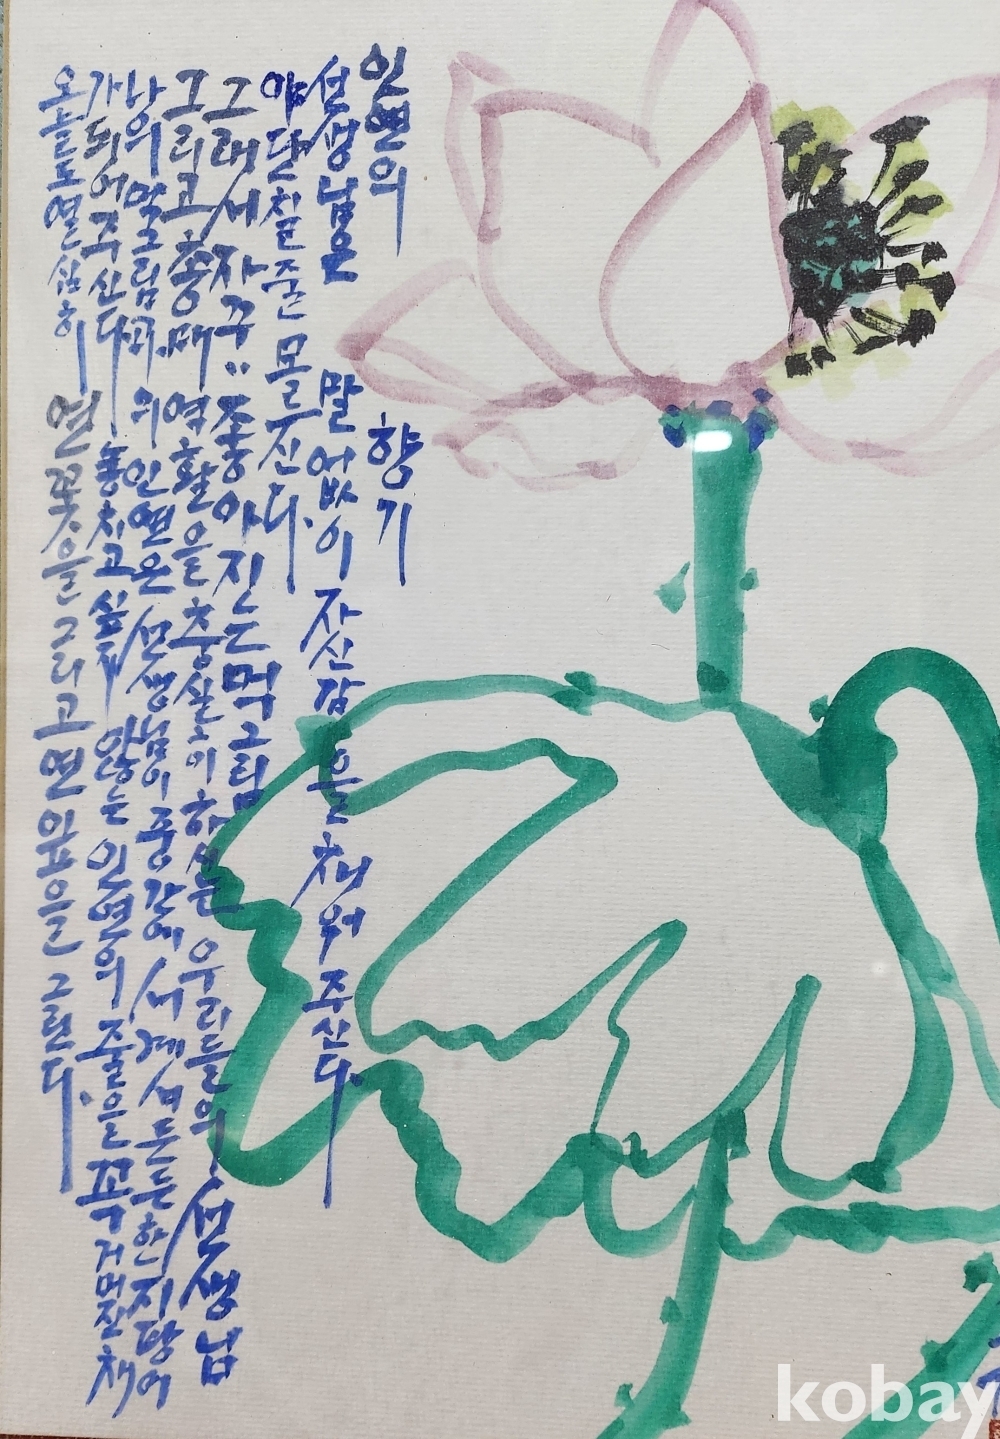 인연의 향기
선생님은 말 없이 자신감을 채워주신다.
야단칠 줄 모르신다.
그래서 자꾸〃 좋아지는 먹그림
그리고 총매 역활을 충실이 하시는 우리들의 선생님
낭의 먹그림과의 인연은 선생님이 중간에 서 계셔 든든한 지팡이
가 되어 주신다 놓치고 싶지 않는 인연의 줄을 꼭 거머쥔 채
오늘도 열심히 연꽃을 그리고 연잎을 그린다.
kobay